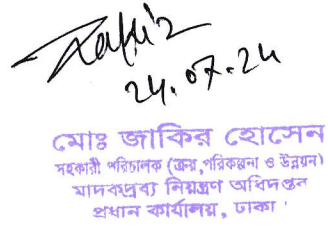 Zakir
24.07.24
মোঃ জাকির হোসেন
সহকারী পরিচালক (ক্রয়,পরিকল্পনা ও উন্নয়ন)
মাদকদ্রব্য নিয়ন্ত্রণ অধিদপ্তর
প্রধান কার্যালয়, ঢাকা